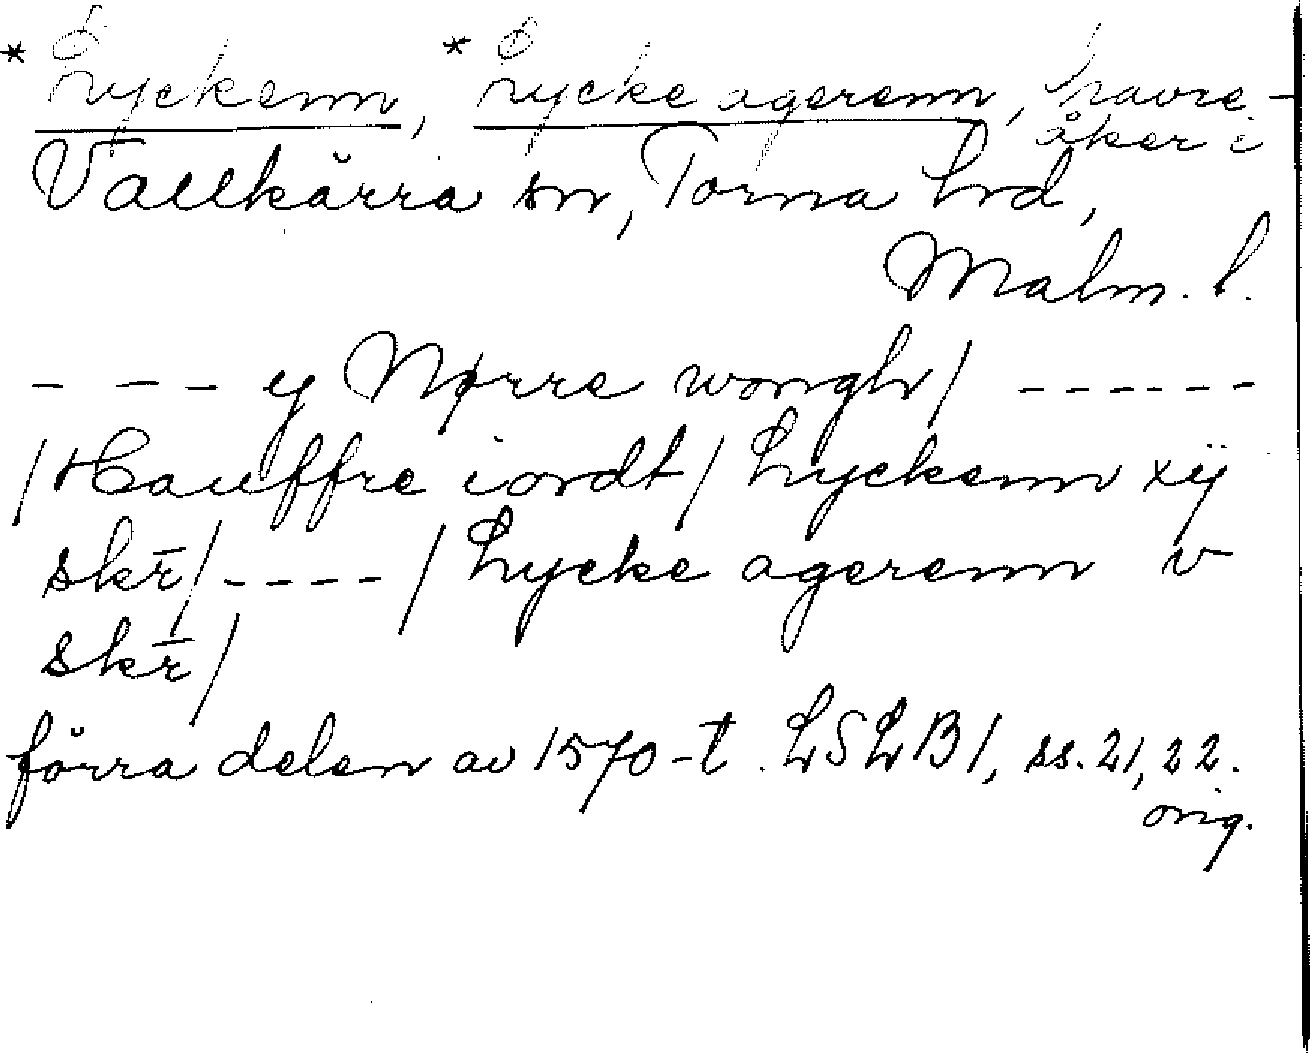 * Lyckenn, * Lycke agerenn, havre-
åker i
Vallkärra sn, Torna hd,
Malm. l.
- - - y Nørre wongh/ - - - - - -
/Hauffre iordt/ Lyckenn xÿ
skr̄/ - - - - / Lycke agerenn v
skr̄/
förra delen av 1570-t. LSLB1, ss. 21, 22.
orig.